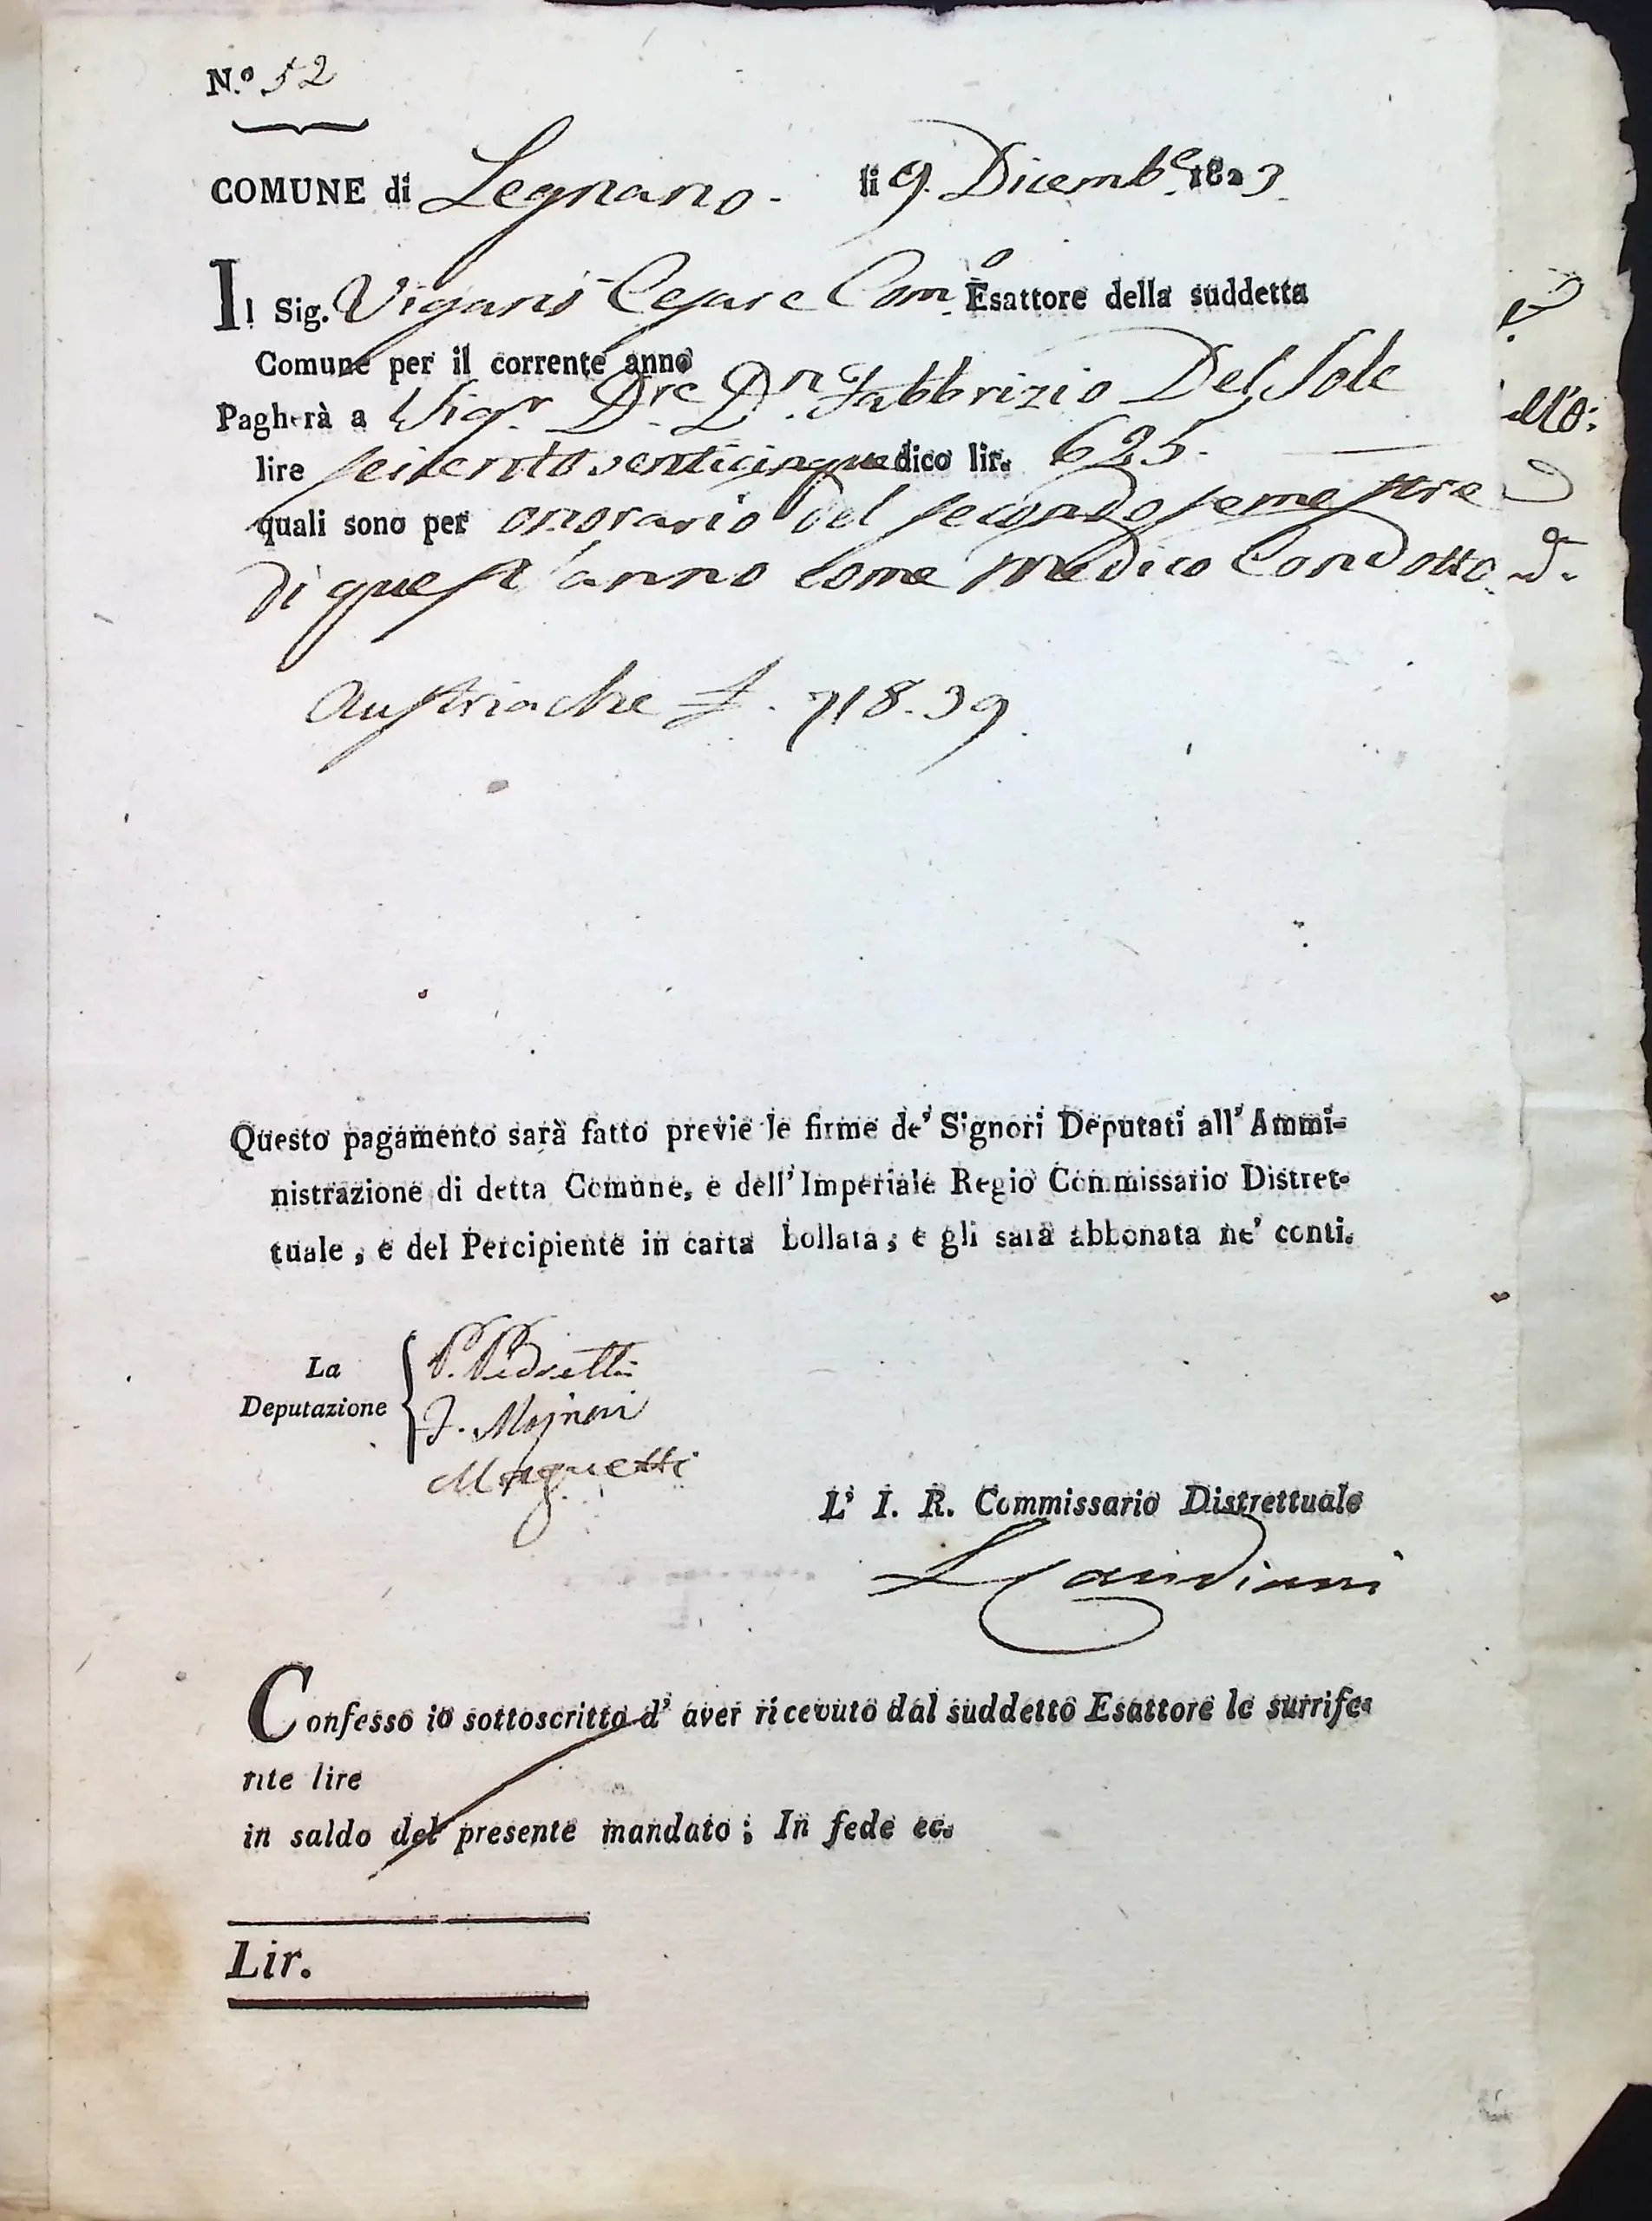 N.º 52
COMUNE di Legnano. li 9. Dicemb.e 1823.
Il Sig. Viganò Cesare Com.o Esattore della suddetta
Comune per il corrente anno
Pagherà a Sig.r D.re D.n Fabbrizio Del Sole
lire seicento venticinque dico lir. 625.
quali sono per onorario del secondo semestre
di quest'anno come medico Condotto.
Austriache £. 718.39.
Questo pagamento sarà fatto previe le firme de' Signori Deputati all' Ammi-
nistrazione di detta Comune, e dell' Imperiale Regio Commissario Distret-
tuale, e del Percipiente in carta bollata; e gli sarà abbonata ne' conti.
La
Deputazione
P. Pedretti
L' I. R. Commissario Distrettuale
Confesso io sottoscritto d' aver ricevuto dal suddetto Esattore le surrife-
rite lire
in saldo del presente mandato; In fede ec.
Lir.